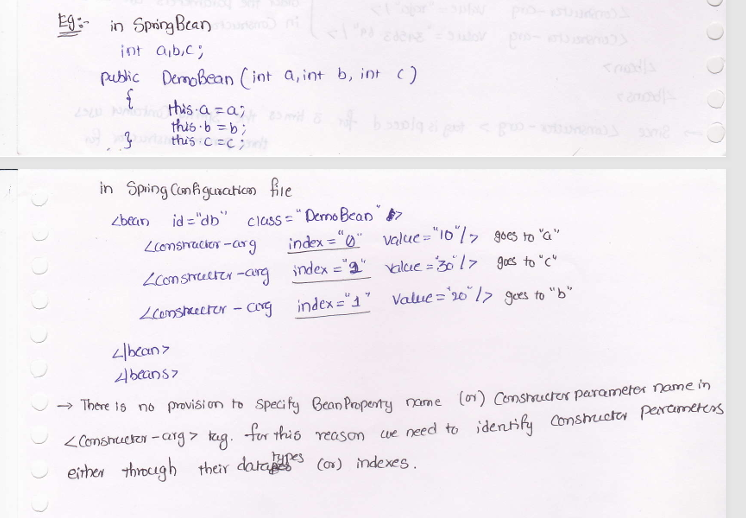 Eg:- in SpringBean
int a,b,c;
public DemoBean (int a, int b, int c)
{ this.a = a;
this.b = b;
} this.c = c;
in Spring Configuration file
<bean id="db" class="DemoBean">
<constructor-arg index="0" value="10"/> goes to "a"
<constructor-arg index="2" value="30"/> goes to "c"
<constructor-arg index="1" value="20"/> goes to "b"
</bean>
</beans>
→ There is no provision to specify BeanProperty name (or) Constructor parameter name in
<constructor-arg> tag. for this reason we need to identify constructor parameters
either through their datatypes (or) indexes.